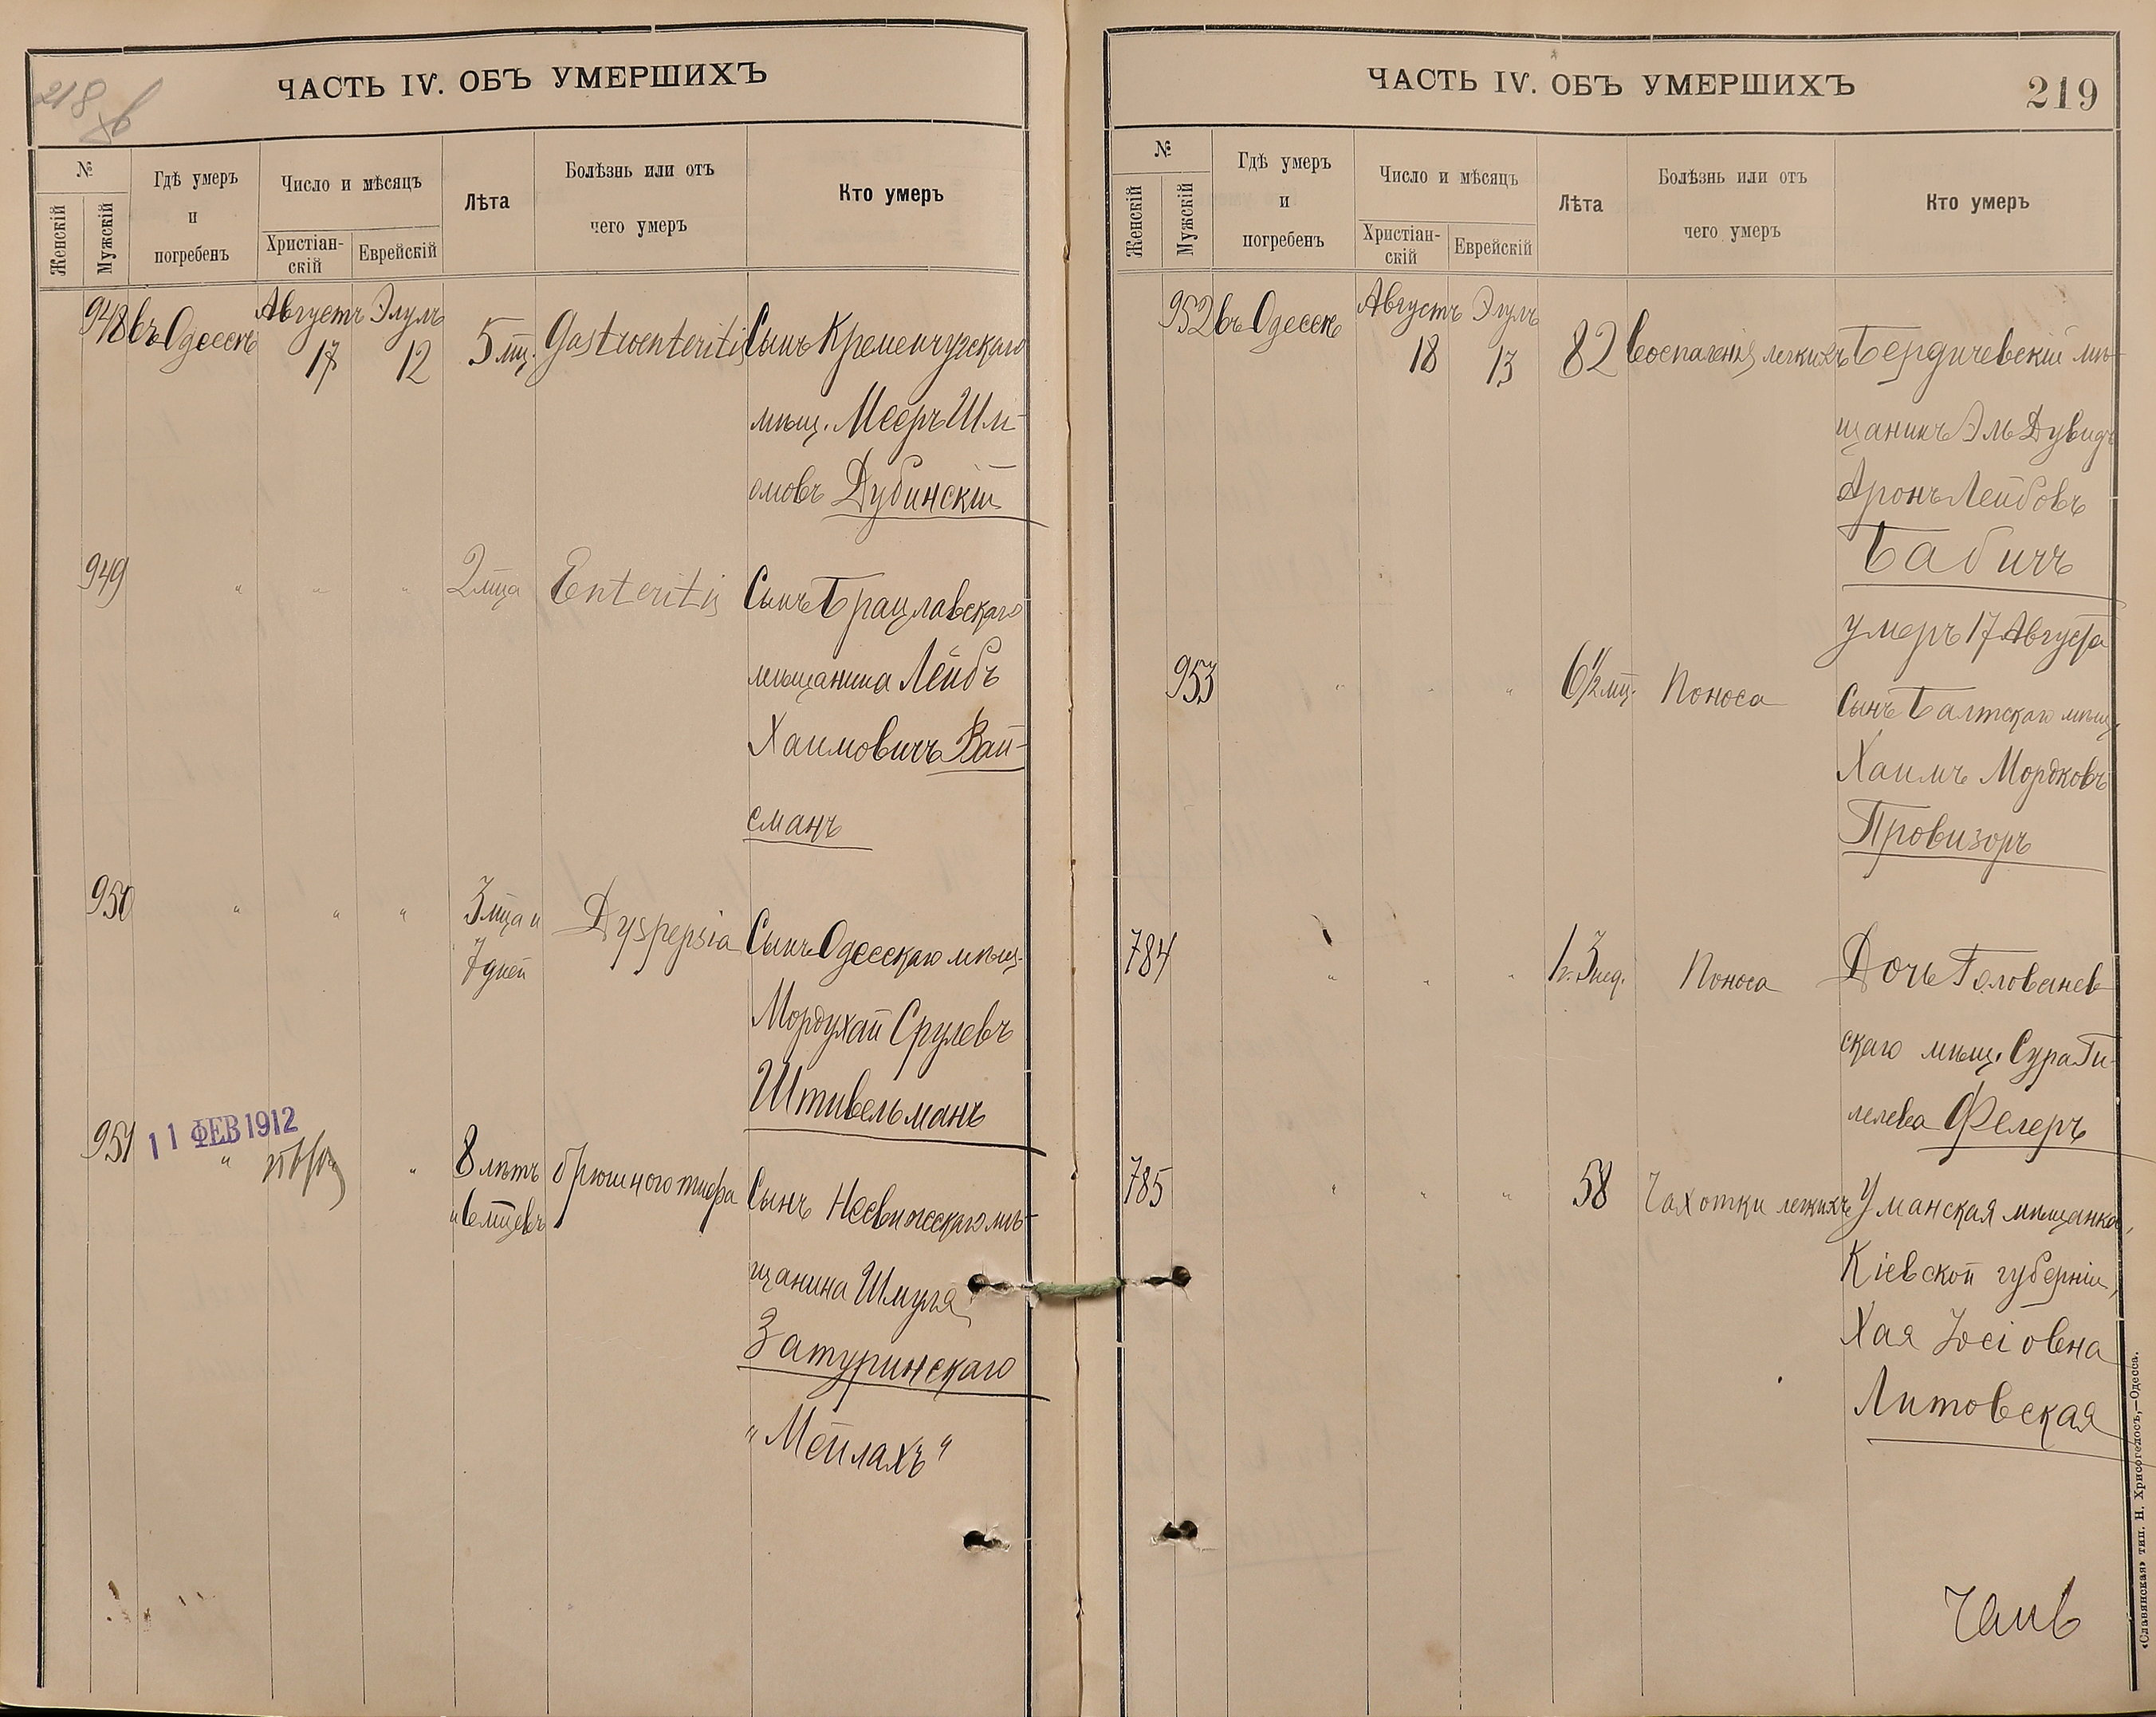 218 об
ЧАСТЬ IV. ОБЪ УМЕРШИХЪ
№
Женскій
Мужскій
Гдѣ умеръ
и
погребенъ
Число и мѣсяцъ
Христіан-
скій
Еврейскій
Лѣта
Болѣзнь или отъ
чего умеръ
Кто умеръ
948 въ Одессѣ Августъ 17 Элулъ 12 5 мц. Gastroenteritis Сынъ Кременчугскаго
мѣщ. Мееръ Шлі-
омовъ Дубинскій
949 " " " 2 мца Enteritis Сынъ Брацлавскаго
мѣщанина Лейбъ
Хаимовичъ Вай-
сманъ
950 " " " 3 мца и
7 дней
Dyspepsia Сынъ Одесскаго мѣщ.
Мордухай Срулевъ
Штивельманъ
11 ФЕВ 1912
951 " " 8 лѣтъ
и 6 мцевъ
брюшного тифа Сынъ Несвижскаго мѣ-
щанина Шмуля
Затуринскаго
"Мейлахъ"
ЧАСТЬ IV. ОБЪ УМЕРШИХЪ
219
№
Женскій
Мужскій
Гдѣ умеръ
и
погребенъ
Число и мѣсяцъ
Христіан-
скій
Еврейскій
Лѣта
Болѣзнь или отъ
чего умеръ
Кто умеръ
952 въ Одессѣ Августъ 18 Элулъ 13 82 Воспаленія легкихъ Бердичевскій мѣ-
щанинъ Эль Дувидъ
Аронъ Лейбовъ
Бабичъ
умеръ 17 Августа
953 " " " 6 1/2 мц. Поноса Сынъ Балтскаго мѣщ.
Хаимъ Мордковъ
Провизоръ
784 " " " 1 г. 3 нед. Поноса Дочь Голованев-
скаго мѣщ. Сура Ги-
лелева Фелеръ
785 " " " 58 Чахотки легкихъ Уманская мѣщанка,
Кіевской губерніи,
Хая Іосіовна
Литовская
«Славянская» тип. Н. Хрисогелосъ,—Одесса.